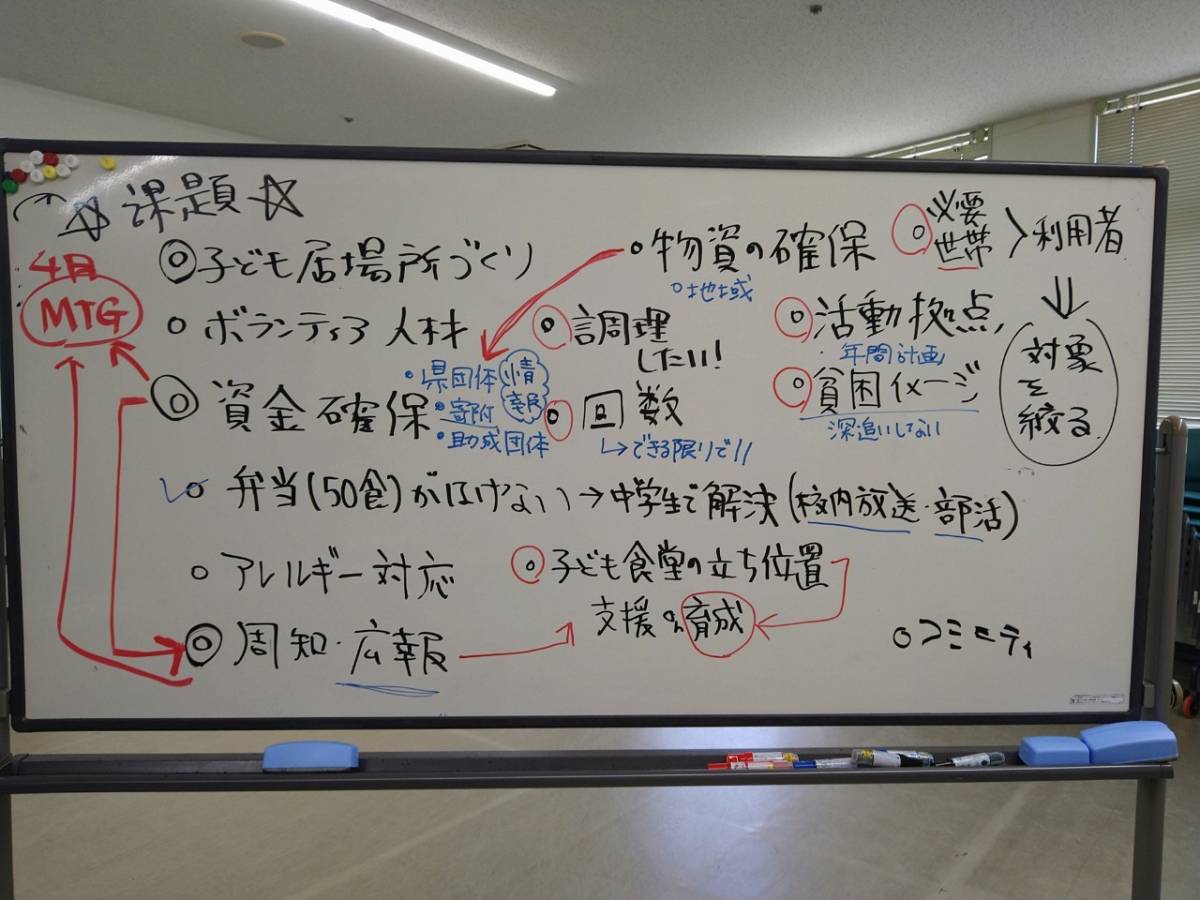 ☆課題☆
4月
MTG
◎子ども居場所づくり
○ボランティア人材
◎資金確保
・県団体
・寄付
・助成団体
情報
○物資の確保
○地域
○調理
したい!
○回数
↳できる限りで//
○必要
世帯
>利用者
⇓
対象
を
絞る
○活動拠点
年間計画
○貧困イメージ
深追いしない
○弁当(50食)がはけない→中学生で解決(校内放送・部活)
○アレルギー対応
○子ども食堂の立ち位置
支援の育成
◎周知・広報
○コミニティ